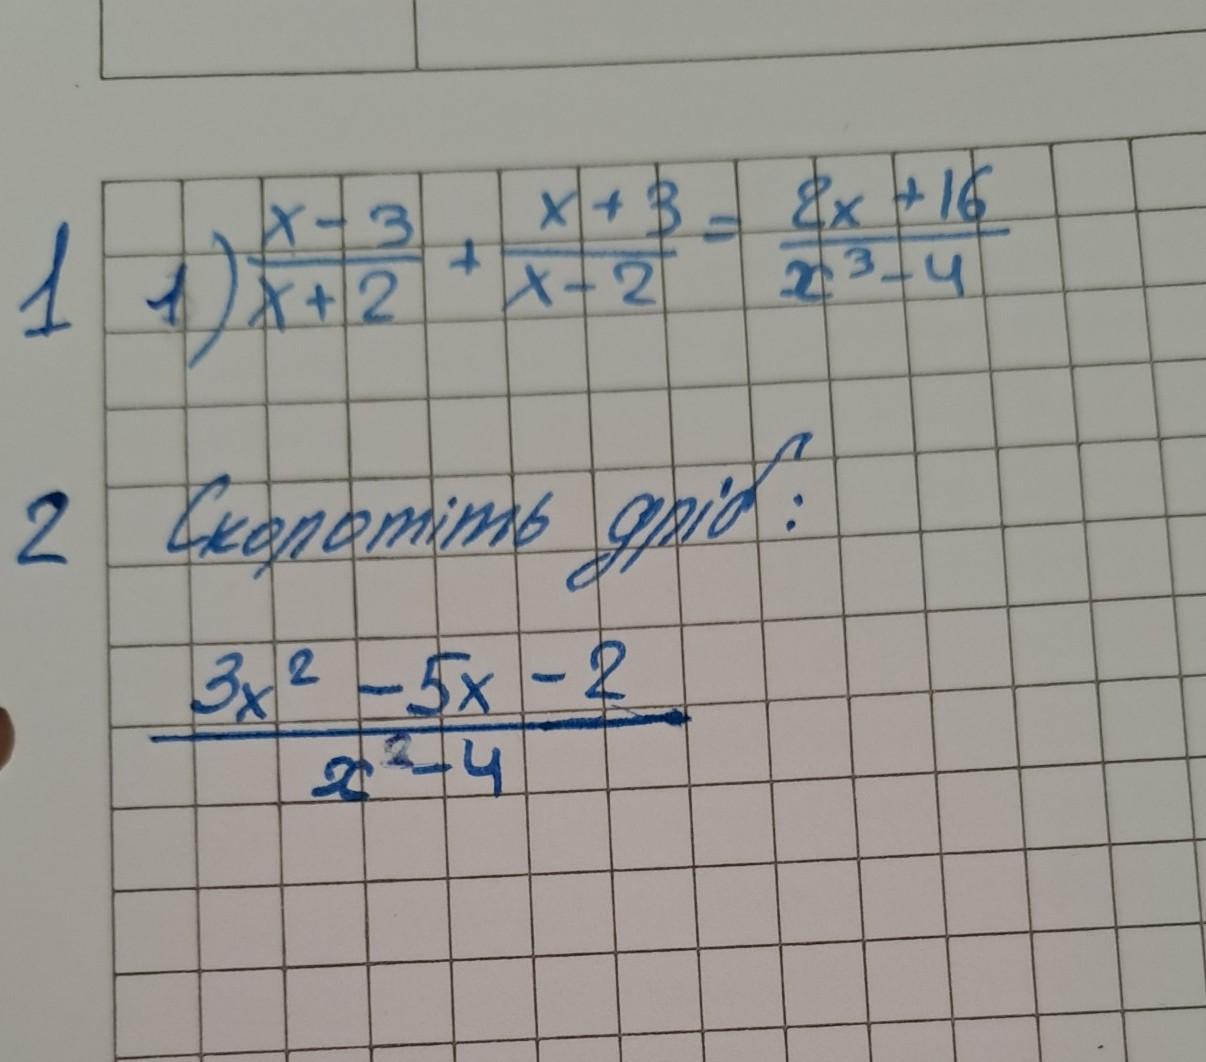 1 1) x-3/x+2 + x+3/x-2 = 2x+16/x³-4
2 Скоротіть дріб:
3x² - 5x - 2/x²-4